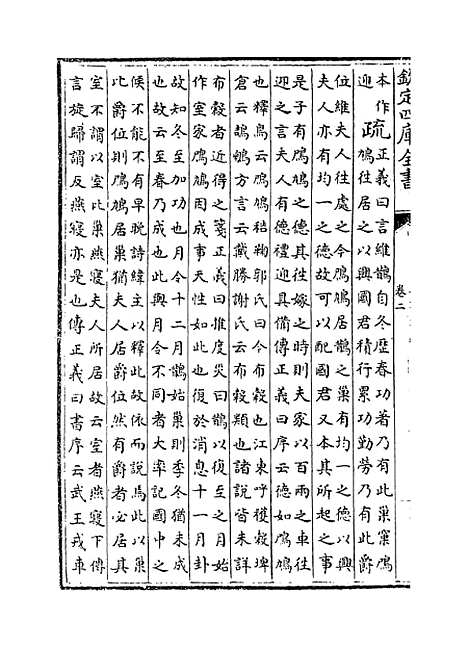 欽定四庫全書
卷二
本作疏正義曰言維鵲自冬歷春功著乃有此巢窠鳲
迎鳩往居之以興國君積行累功勤勞乃有此爵
位維夫人往處之今鳲鳩居鵲之巢有均一之德以興
夫人亦有均一之德故可以配國君又本其所起之事
是子有鳲鳩之德其往嫁之時則夫家以百兩之車往
迎之言夫人有德禮迎具備傳正義曰序云德如鳲鳩
也釋鳥云鳲鳩秸鞠郭氏曰今布穀也江東呼穫穀埤
倉云鴶鵴方言云戴勝謝氏云布穀類也諸說皆未詳
布穀者近得之箋正義曰推度災曰鵲以復至之月始
作室家鳲鳩因成事天性如此也復於消息十一月卦
故知冬至加功也月令十二月鵲始巢則季冬猶未成
也故云至春乃成也此與月令不同者大率記國中之
候不能不有早晚詩緯主以釋此故依而說焉此以巢
比爵位則鳲鳩居巢猶夫人居爵位然有爵者必居其
室不謂以室比巢燕寢夫人所居故云室者燕寢下傳
言旋歸謂反燕寢亦是也傳正義曰書序云武王戎車